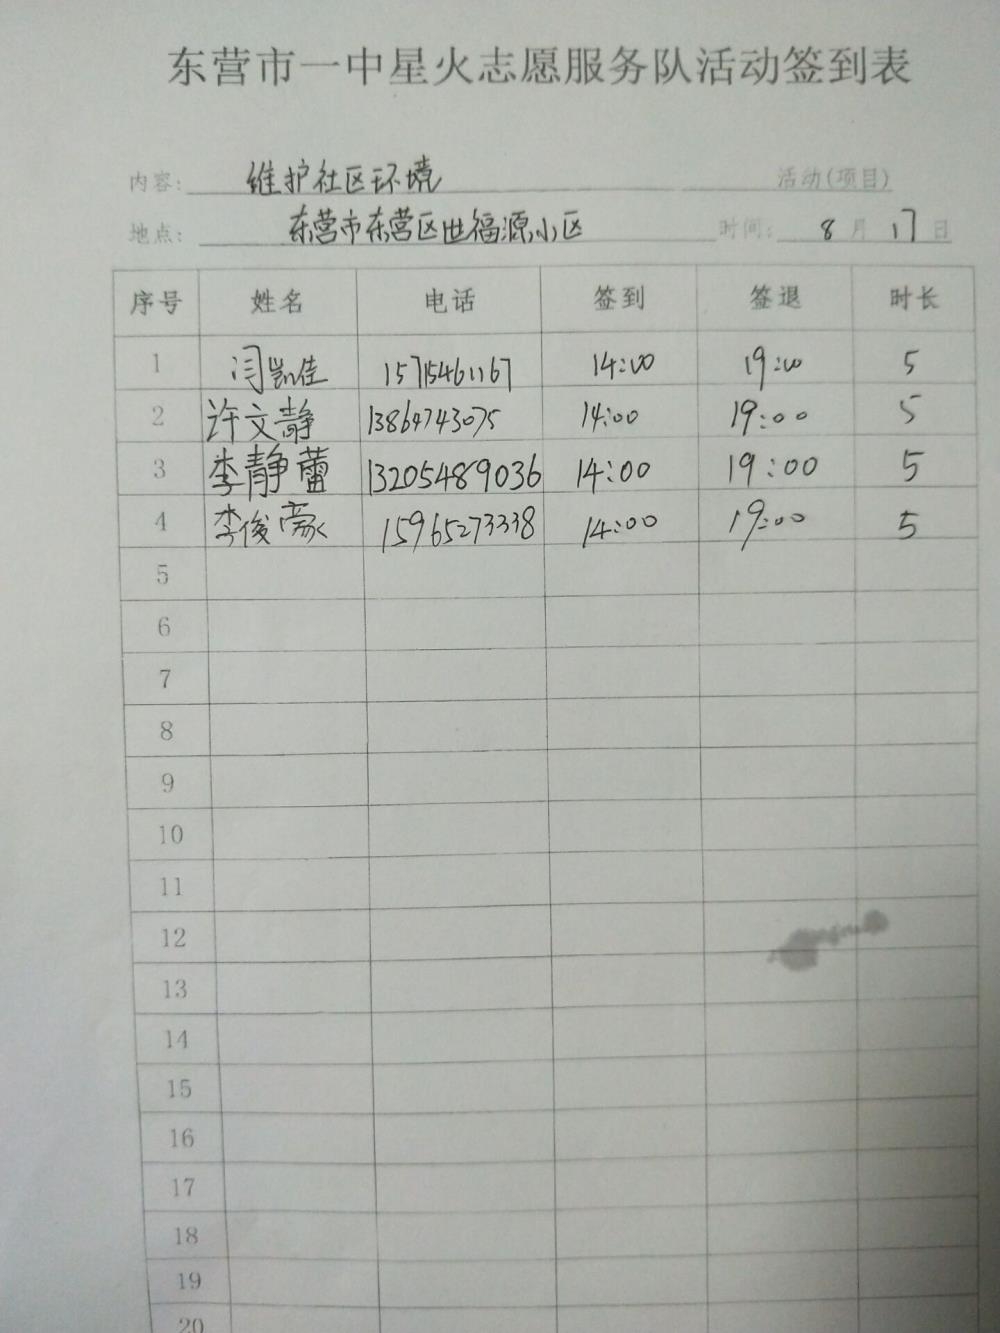 东营市一中星火志愿服务队活动签到表
内容: 维护社区环境 活动(项目)
地点: 东营市东营区世福源小区 时间: 8 月 17 日
序号 姓名 电话 签到 签退 时长
1 闫凯佳 15715461167 14:00 19:00 5
2 许文静 13864743075 14:00 19:00 5
3 李静蕾 13205489036 14:00 19:00 5
4 李俊豪 15965273338 14:00 19:00 5
5
6
7
8
9
10
11
12
13
14
15
16
17
18
19
20